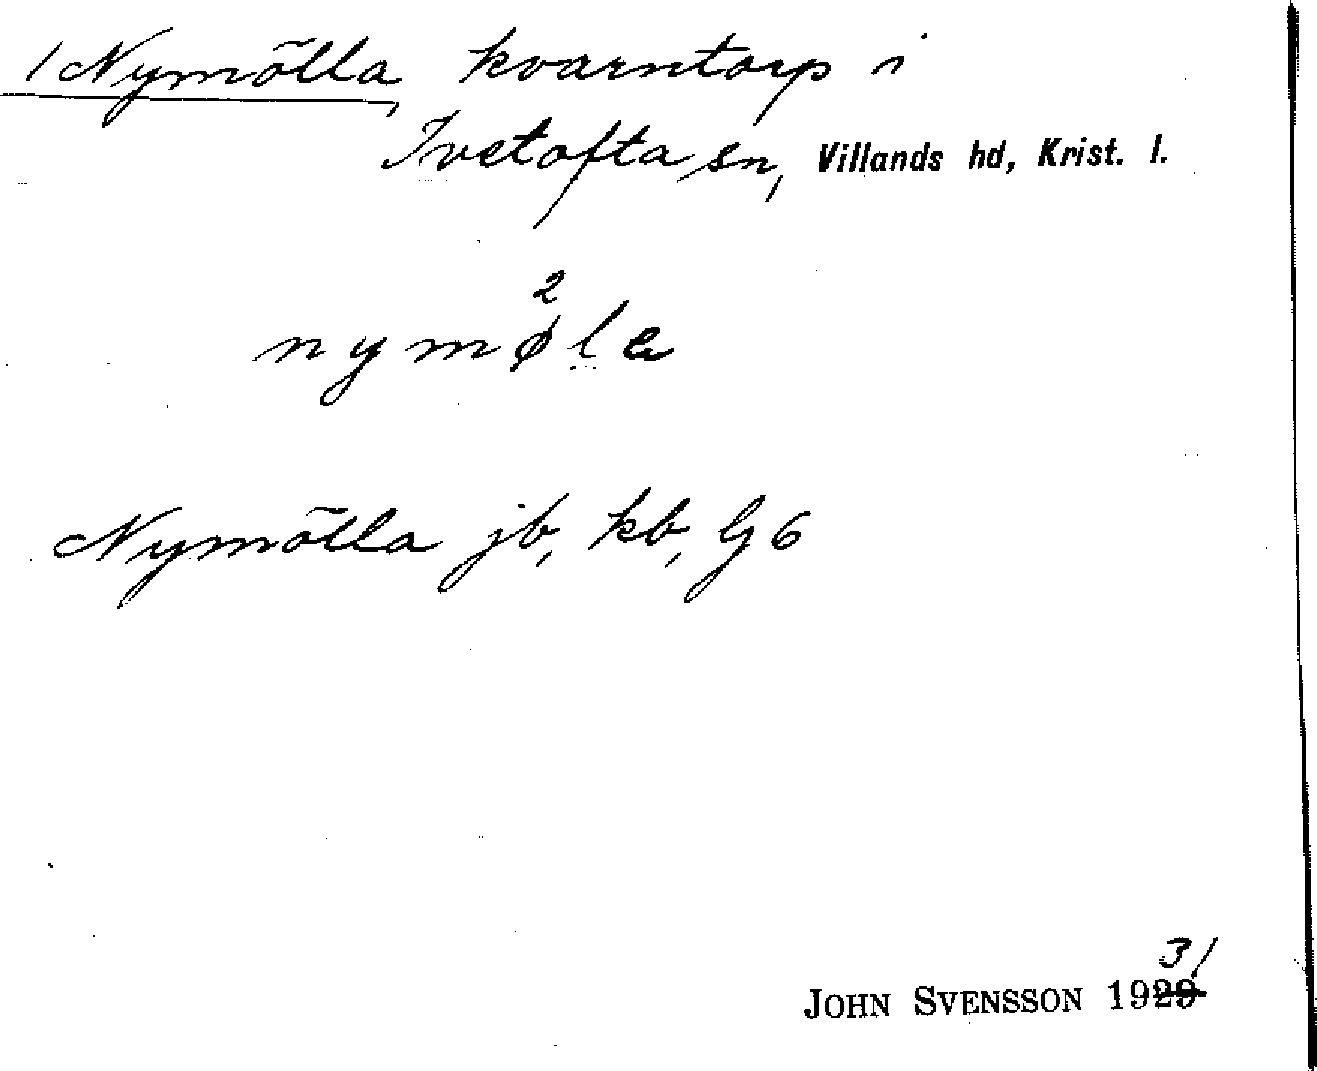 1 Nymölla, kvarntorp i
Ivetofta sn, Villands hd, Krist. l.
2
nymøla
Nymölla jb, kb, G6
31
JOHN SVENSSON 1929